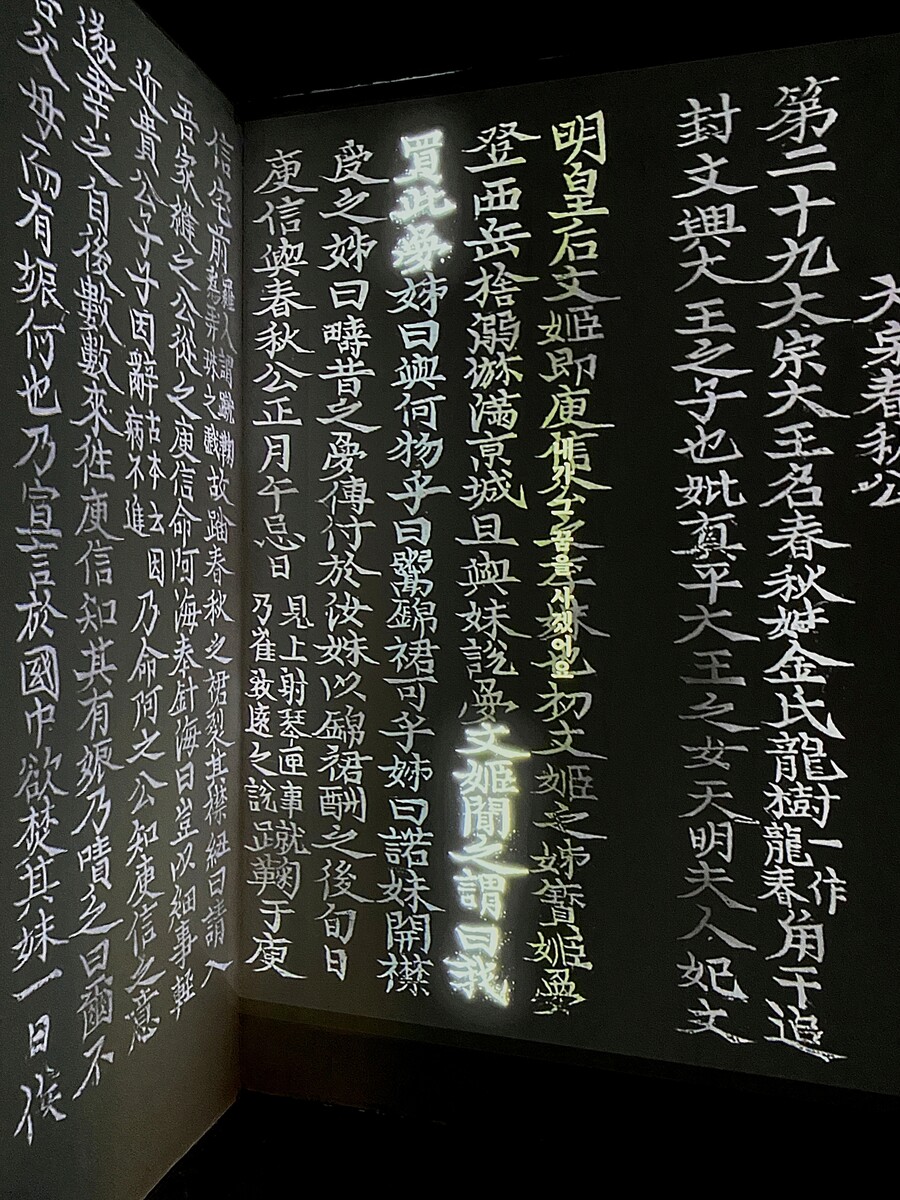 大宗春秋公
第二十九大宗大王名春秋姓金氏龍樹一作龍春角干追
封文興大王之子也妣真平大王之女天明夫人妃文
明皇后文姬即庾信之季妹也初文姬之姊寶姬夢
내가 그 꿈을 사겠어요
登西岳捨溺㳽滿亰城旦與妹說夢文姬聞之謂曰我
買此夢姊曰與何物乎曰鬻錦裙可乎姊曰諾妹開襟
受之姊曰疇昔之夢傳付於汝妹以錦裙酬之後旬日
庾信與春秋公正月午忌日見上射琴匣事乃崔致遠之說蹴鞠于庾
信宅前羅人謂蹴鞠爲弄珠之戱故踏春秋之裙裂其襟紐曰請入
吾家縫之公從之庾信命阿海奉針海曰豈以細事輕
近貴公子乎因辭古本云因病不進乃命阿之公知庾信之意
遂幸之自後數數來往庾信知其有娠乃嘖之曰爾不
告父母而有娠何也乃宣言於國中欲焚其妹一日俟